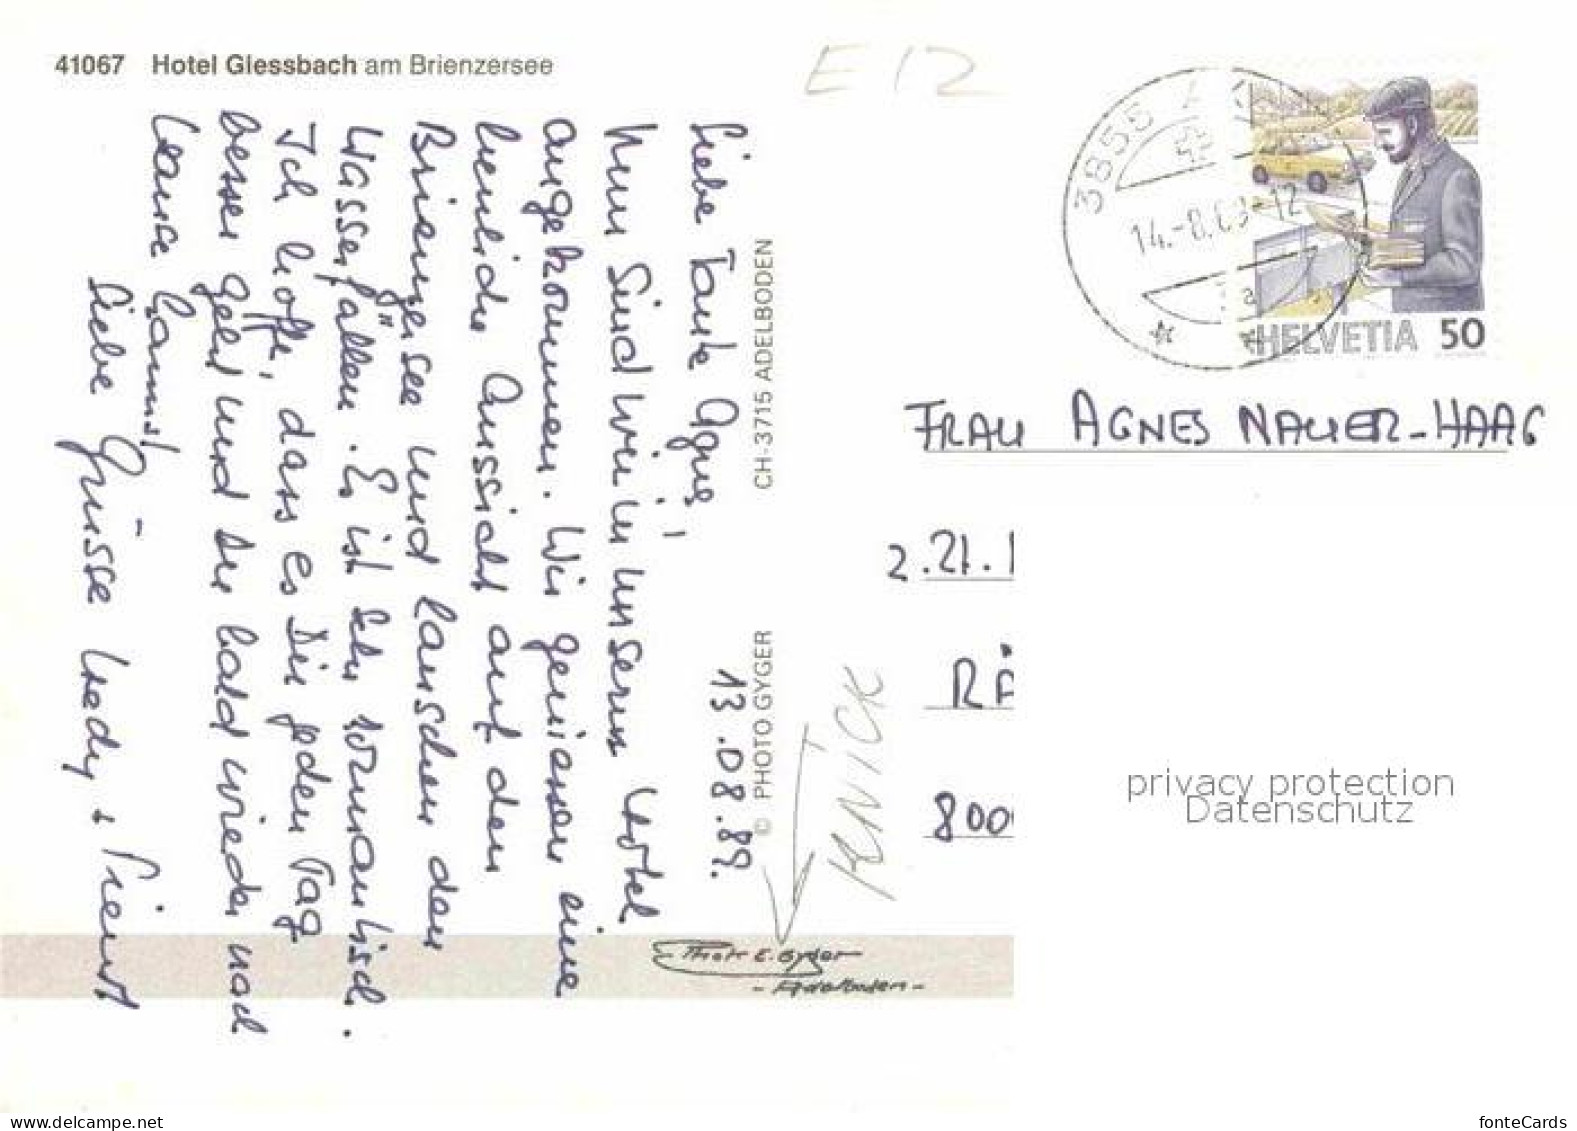 41067 Hotel Giessbach am Brienzersee
E 12
3855
14.-8.89-12
a
HELVETIA 50
13.08.89.
Liebe Tante Agnes,
Nun sind wir in unserm Hotel
angekommen. Wir geniessen eine
herrliche Aussicht auf den
Brienzersee und lauschen den
Wasserfällen. Es ist sehr romantisch.
Ich hoffe, dass es Dir jeden Tag
besser geht und Du bald wieder nach
Hause kannst!
Liebe Grüsse Hedy &
CH-3715 ADELBODEN
© PHOTO GYGER
KNICK
Photo E. Gyger
- Adelboden -
FRAU AGNES NAUER-HAAG
2.21.1
RÄ
800
privacy protection
Datenschutz
www.delcampe.net
fonteCards